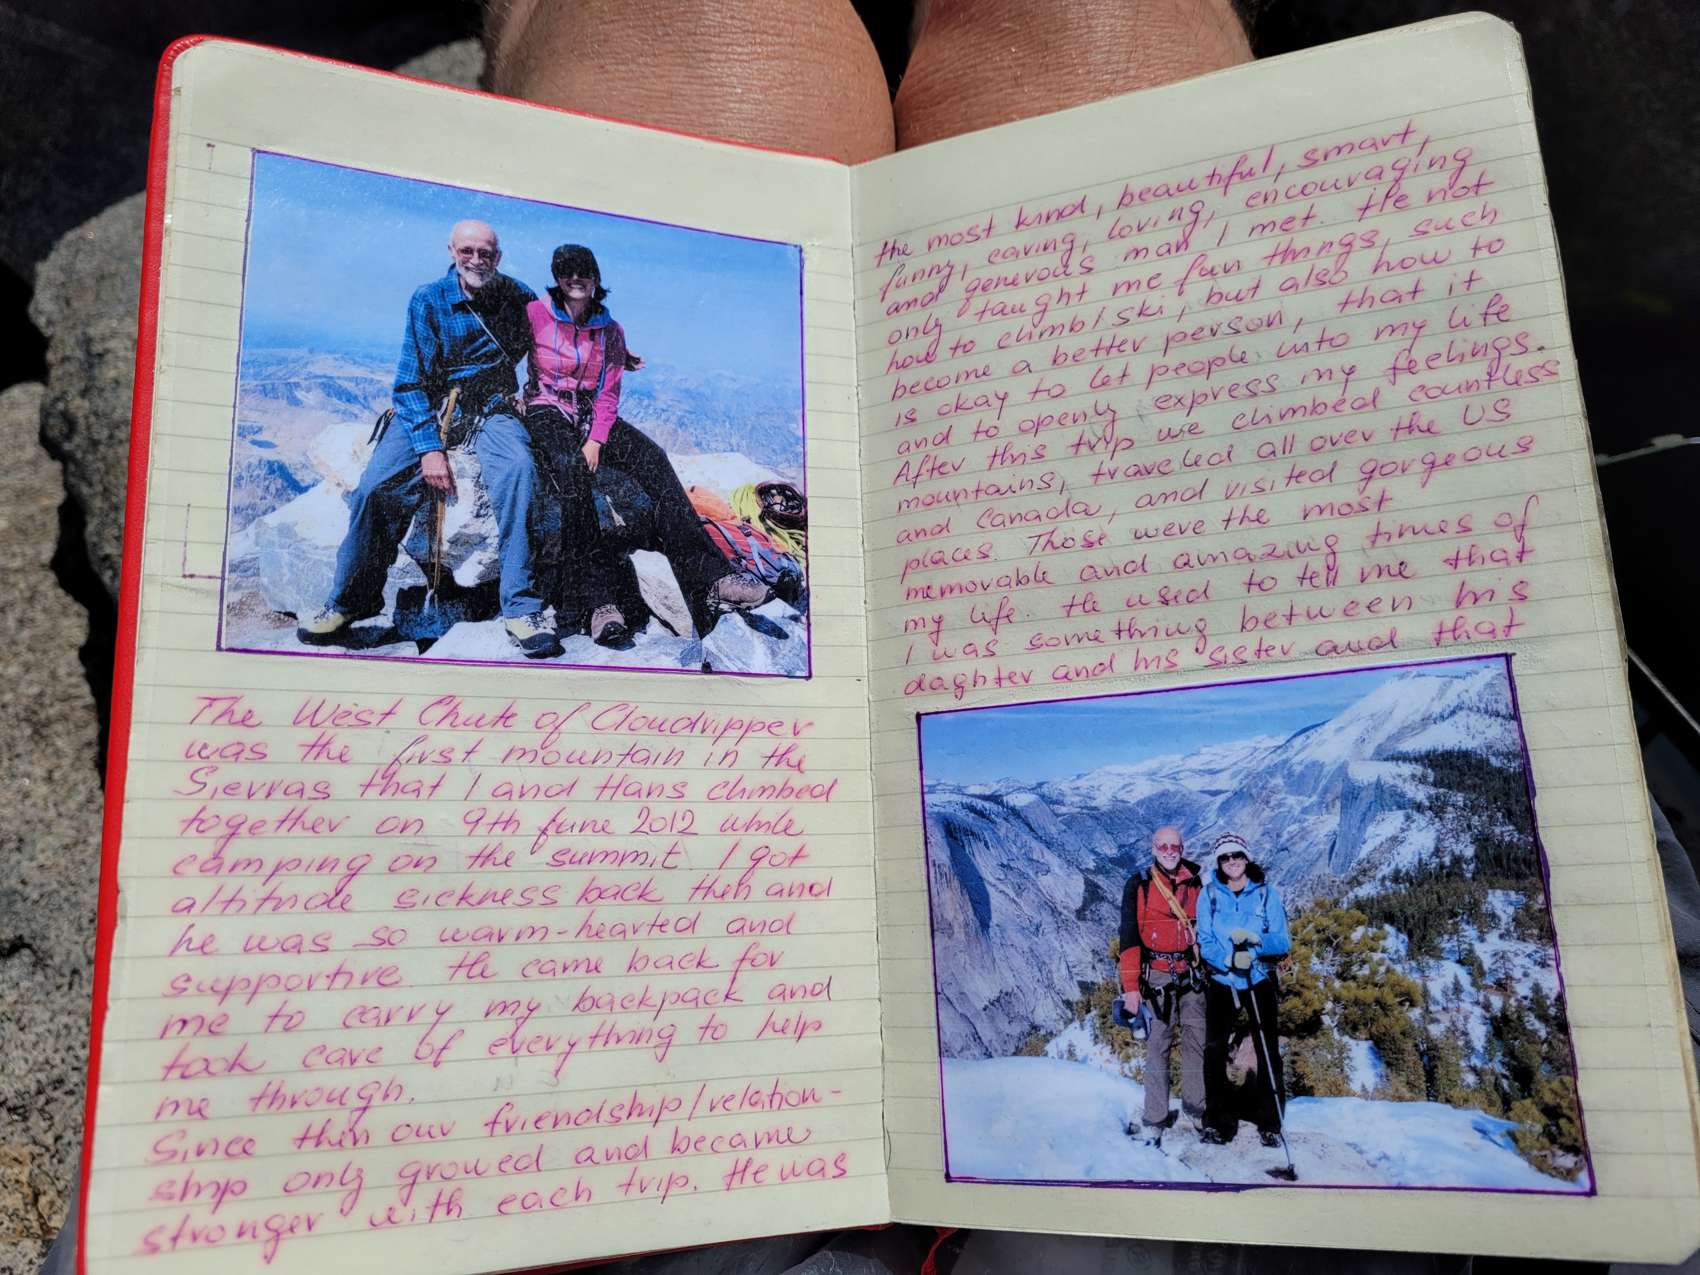 The West Chute of Cloudripper
was the first mountain in the
Sierras that I and Hans climbed
together on 9th June 2012 while
camping on the summit. I got
altitude sickness back then and
he was so warm-hearted and
supportive. He came back for
me to carry my backpack and
took care of everything to help
me through.
Since then our friendship/relation-
ship only growed and became
stronger with each trip. He was
the most kind, beautiful, smart,
funny, caring, loving, encouraging
and generous man I met. He not
only taught me fun things, such
how to climb/ski, but also how to
become a better person, that it
is okay to let people into my life
and to openly express my feelings.
After this trip we climbed countless
mountains, traveled all over the US
and Canada, and visited gorgeous
places. Those were the most
memorable and amazing times of
my life. He used to tell me that
I was something between his
daghter and his sister and that